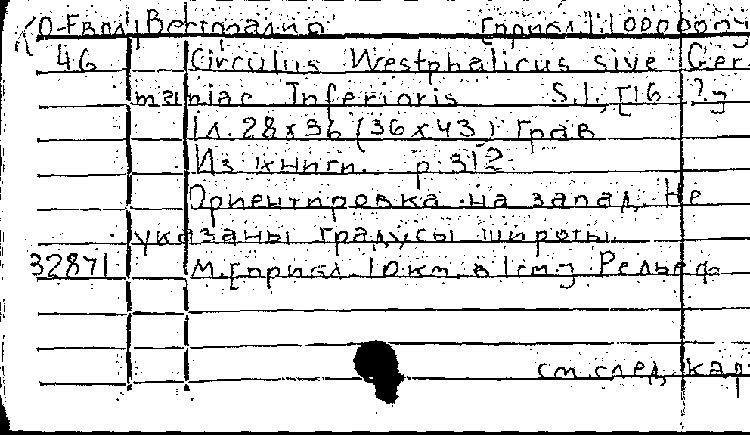 О-Евл Вестфалия [прибл] 1:1000000
46 Circulus Westphalicus sive Ger
maniae Inferioris S.l., [16 ?]
1л. 28x36 (36x43) грав
Из книги. p.312.
Ориентировка на запад. Не
указаны градусы широты.
32871 М.[прибл. 10км. в 1см] Рельеф
см.след. кар